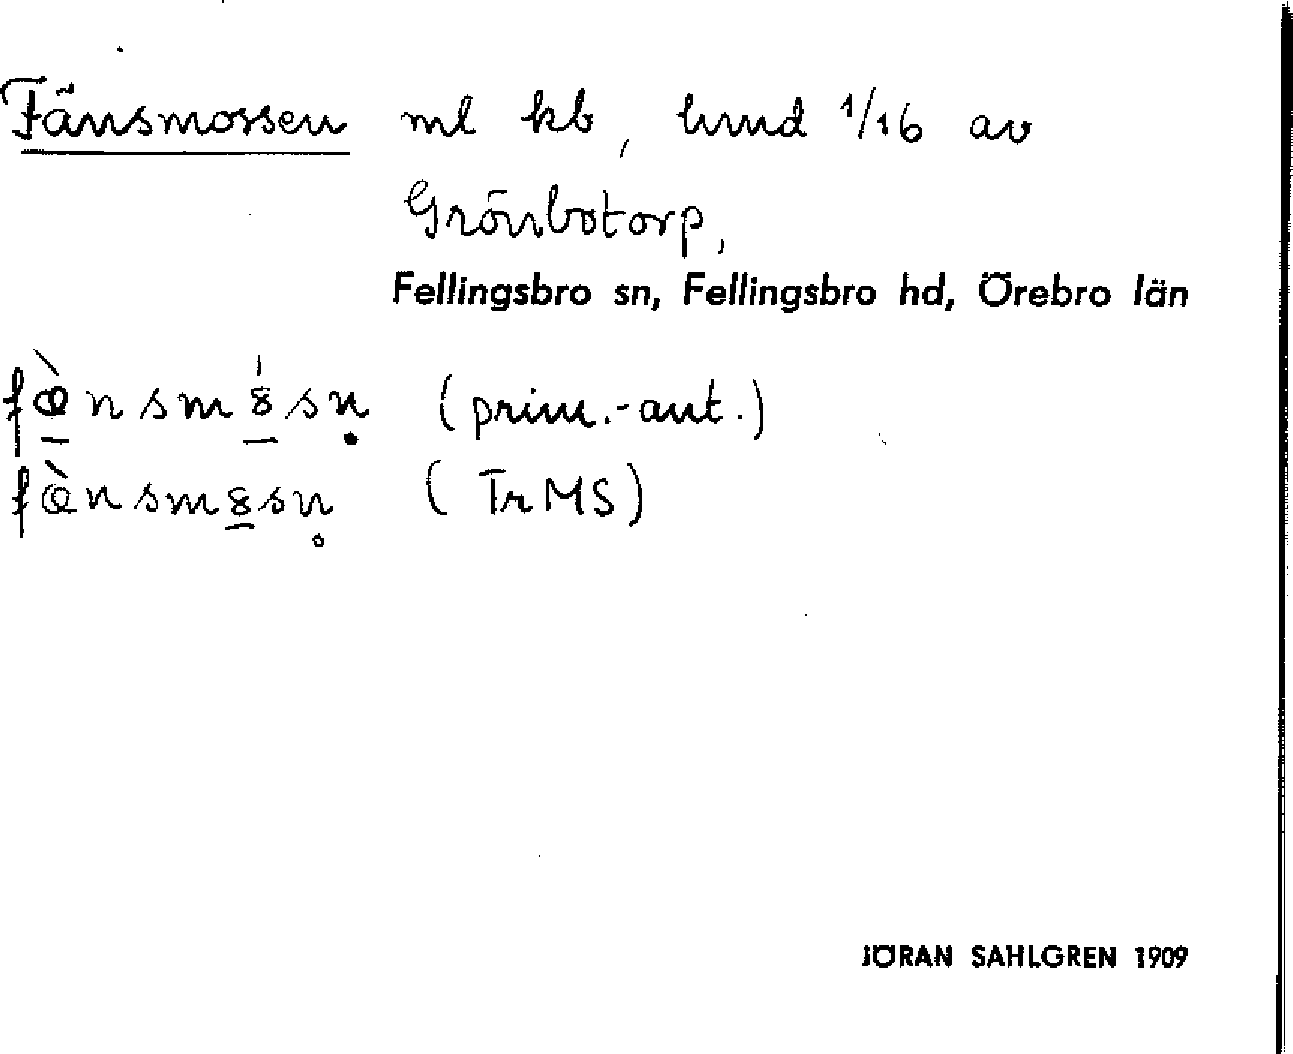 Fänsmossen ml kb, hmd 1/16 av
Grönbotorp,
Fellingsbro sn, Fellingsbro hd, Örebro län
(prim.-ant.)
(TrMS)
JÖRAN SAHLGREN 1909